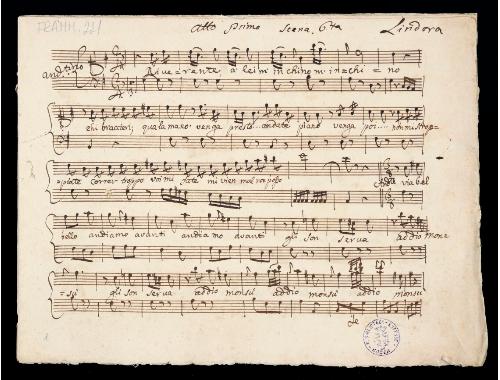 FRAMM. 22/
Atto Primo Scena 6ta Lindora
And.tino
Riverente a lei m'inchino m'in=chi=no
chi bracceri; qua la mano venga presto andate piano venga poi.... non mi strop=
=piate correi troppo voi mi fate mi vien mal non posso via bel
bello andiamo avanti andiamo avanti gli son serva addio mons
=sù gli son serva addio monsù addio monsù addio monsù